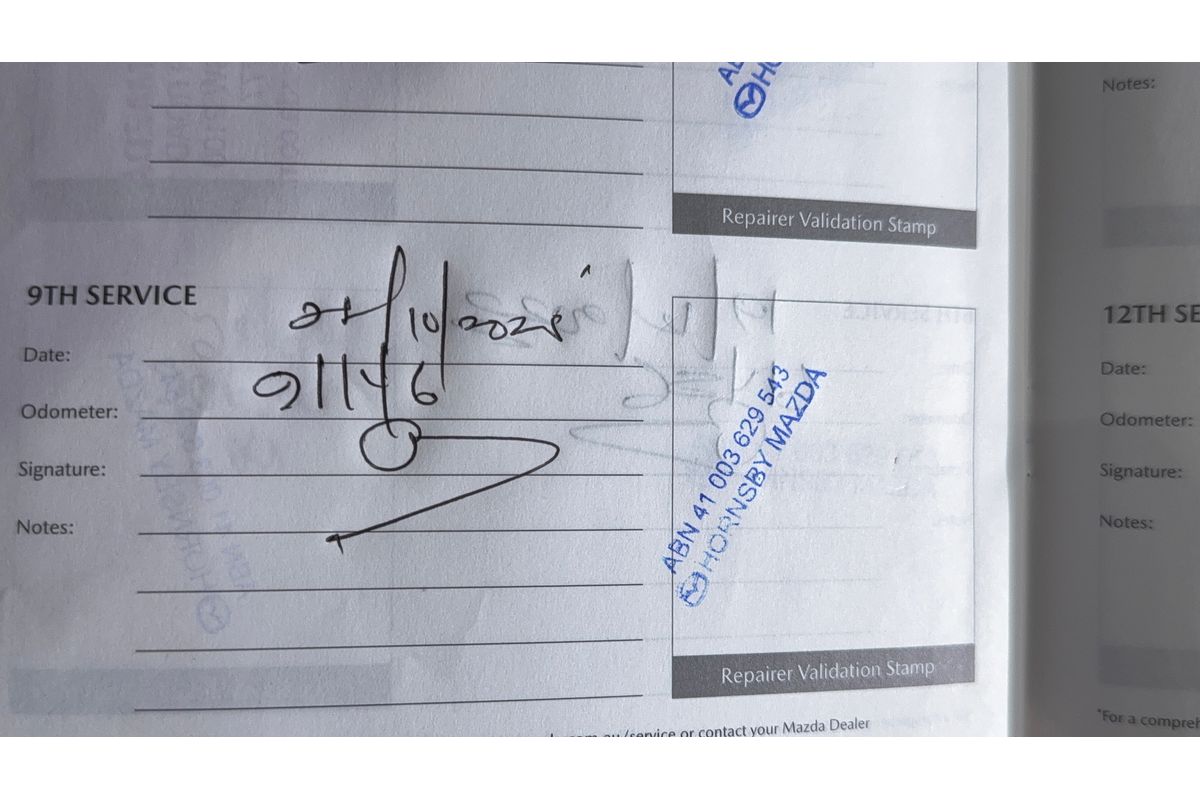 Notes:
Repairer Validation Stamp
9TH SERVICE
Date: /10/202
Odometer: 91146
Signature:
Notes:
ABN 41 003 629 543
HORNSBY MAZDA
Repairer Validation Stamp
/service or contact your Mazda Dealer
12TH SE
Date:
Odometer:
Signature:
Notes:
*For a compreh